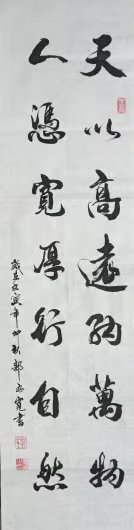 天以高遠納萬物
人憑寬厚行自然
歲在壬寅年仲秋郭永寬書